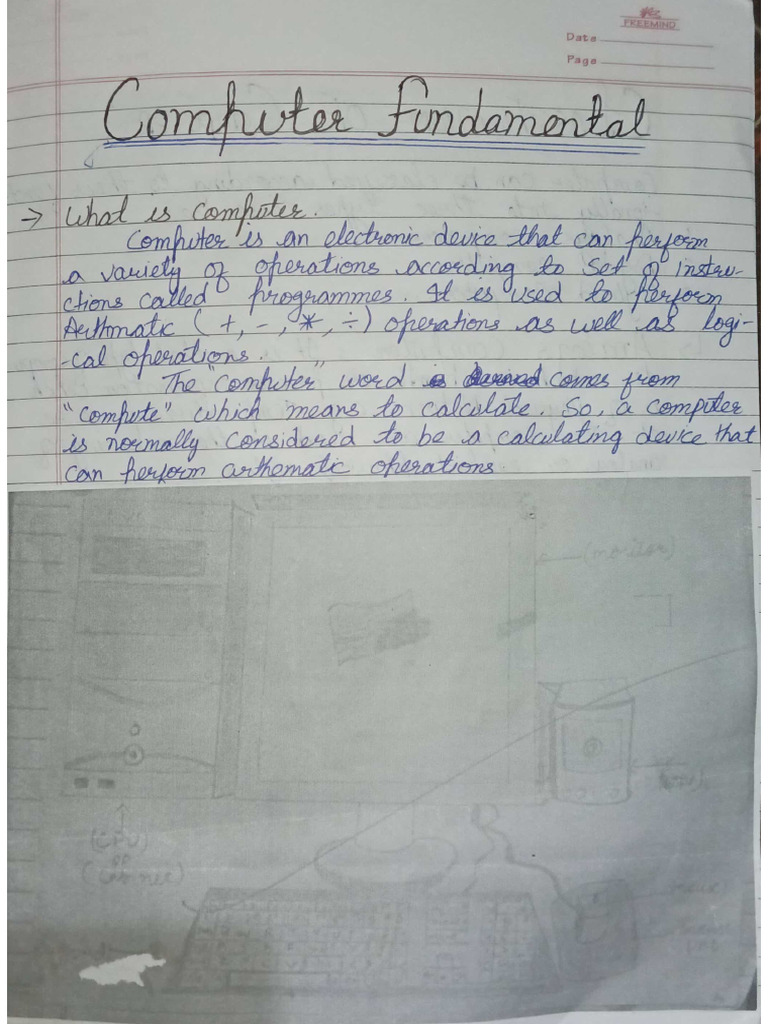 FREEMIND
Date
Page
Computer Fundamental
→ What is Computer.
Computer is an electronic device that can perform
a variety of operations according to set of instru-
ctions called programmes. It is used to perform
Arithmatic ( +, -, *, ÷) operations as well as logi-
-cal operations.
The "computer" word comes from
"compute" which means to calculate. So, a computer
is normally considered to be a calculating device that
can perform arthematic operations.
(monitor)
(CPU)
or
(Cabinet)